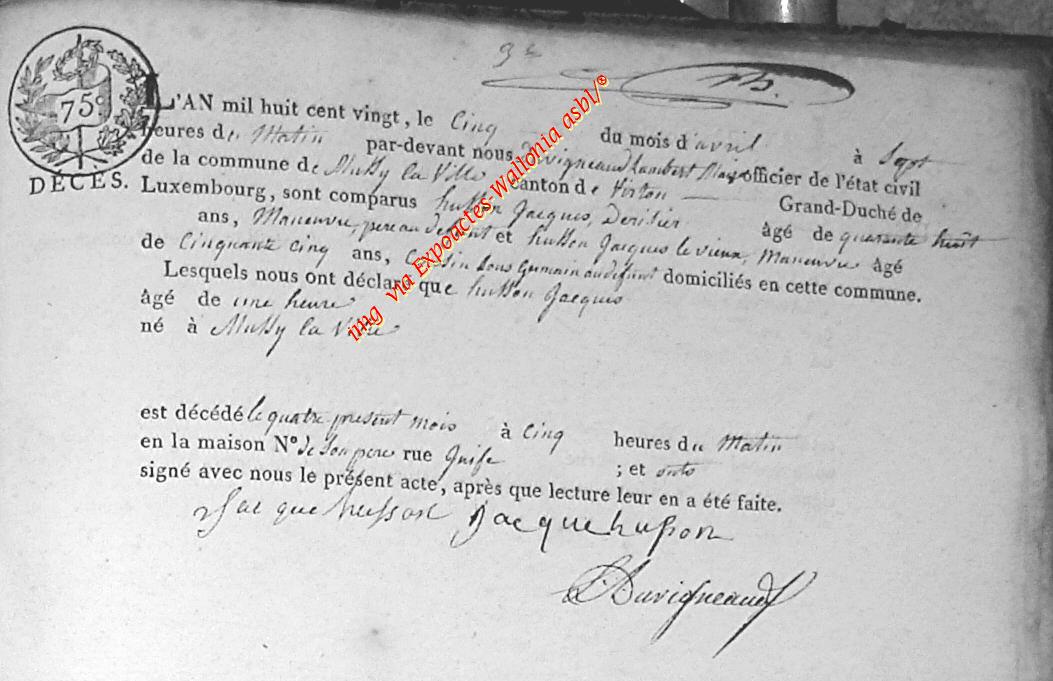 3e
75c
DÉCÈS.
L'AN mil huit cent vingt, le Cinq du mois d'avril à Sept
heures du Matin par-devant nous Duvigneaud Lambert officier de l'état civil
de la commune de Mussy la Ville Canton de Virton Grand-Duché de
Luxembourg, sont comparus husson Jacques, âgé de quarante huit
ans, Maneuvre, pere au defunt et husson Jacques le vieux, Maneuvre âgé
de Cinquante cinq ans, Cousin sous Germain au defunt domiciliés en cette commune.
Lesquels nous ont déclaré que husson Jacques
âgé de une heure
né à Mussy la Ville
est décédé le quatre present mois à Cinq heures du Matin
en la maison N° de Son pere rue ; et onts
signé avec nous le présent acte, après que lecture leur en a été faite.
Jacque husson Jacque husson
L. Duvigneaud
img via Expoactes-Wallonia asbl/®